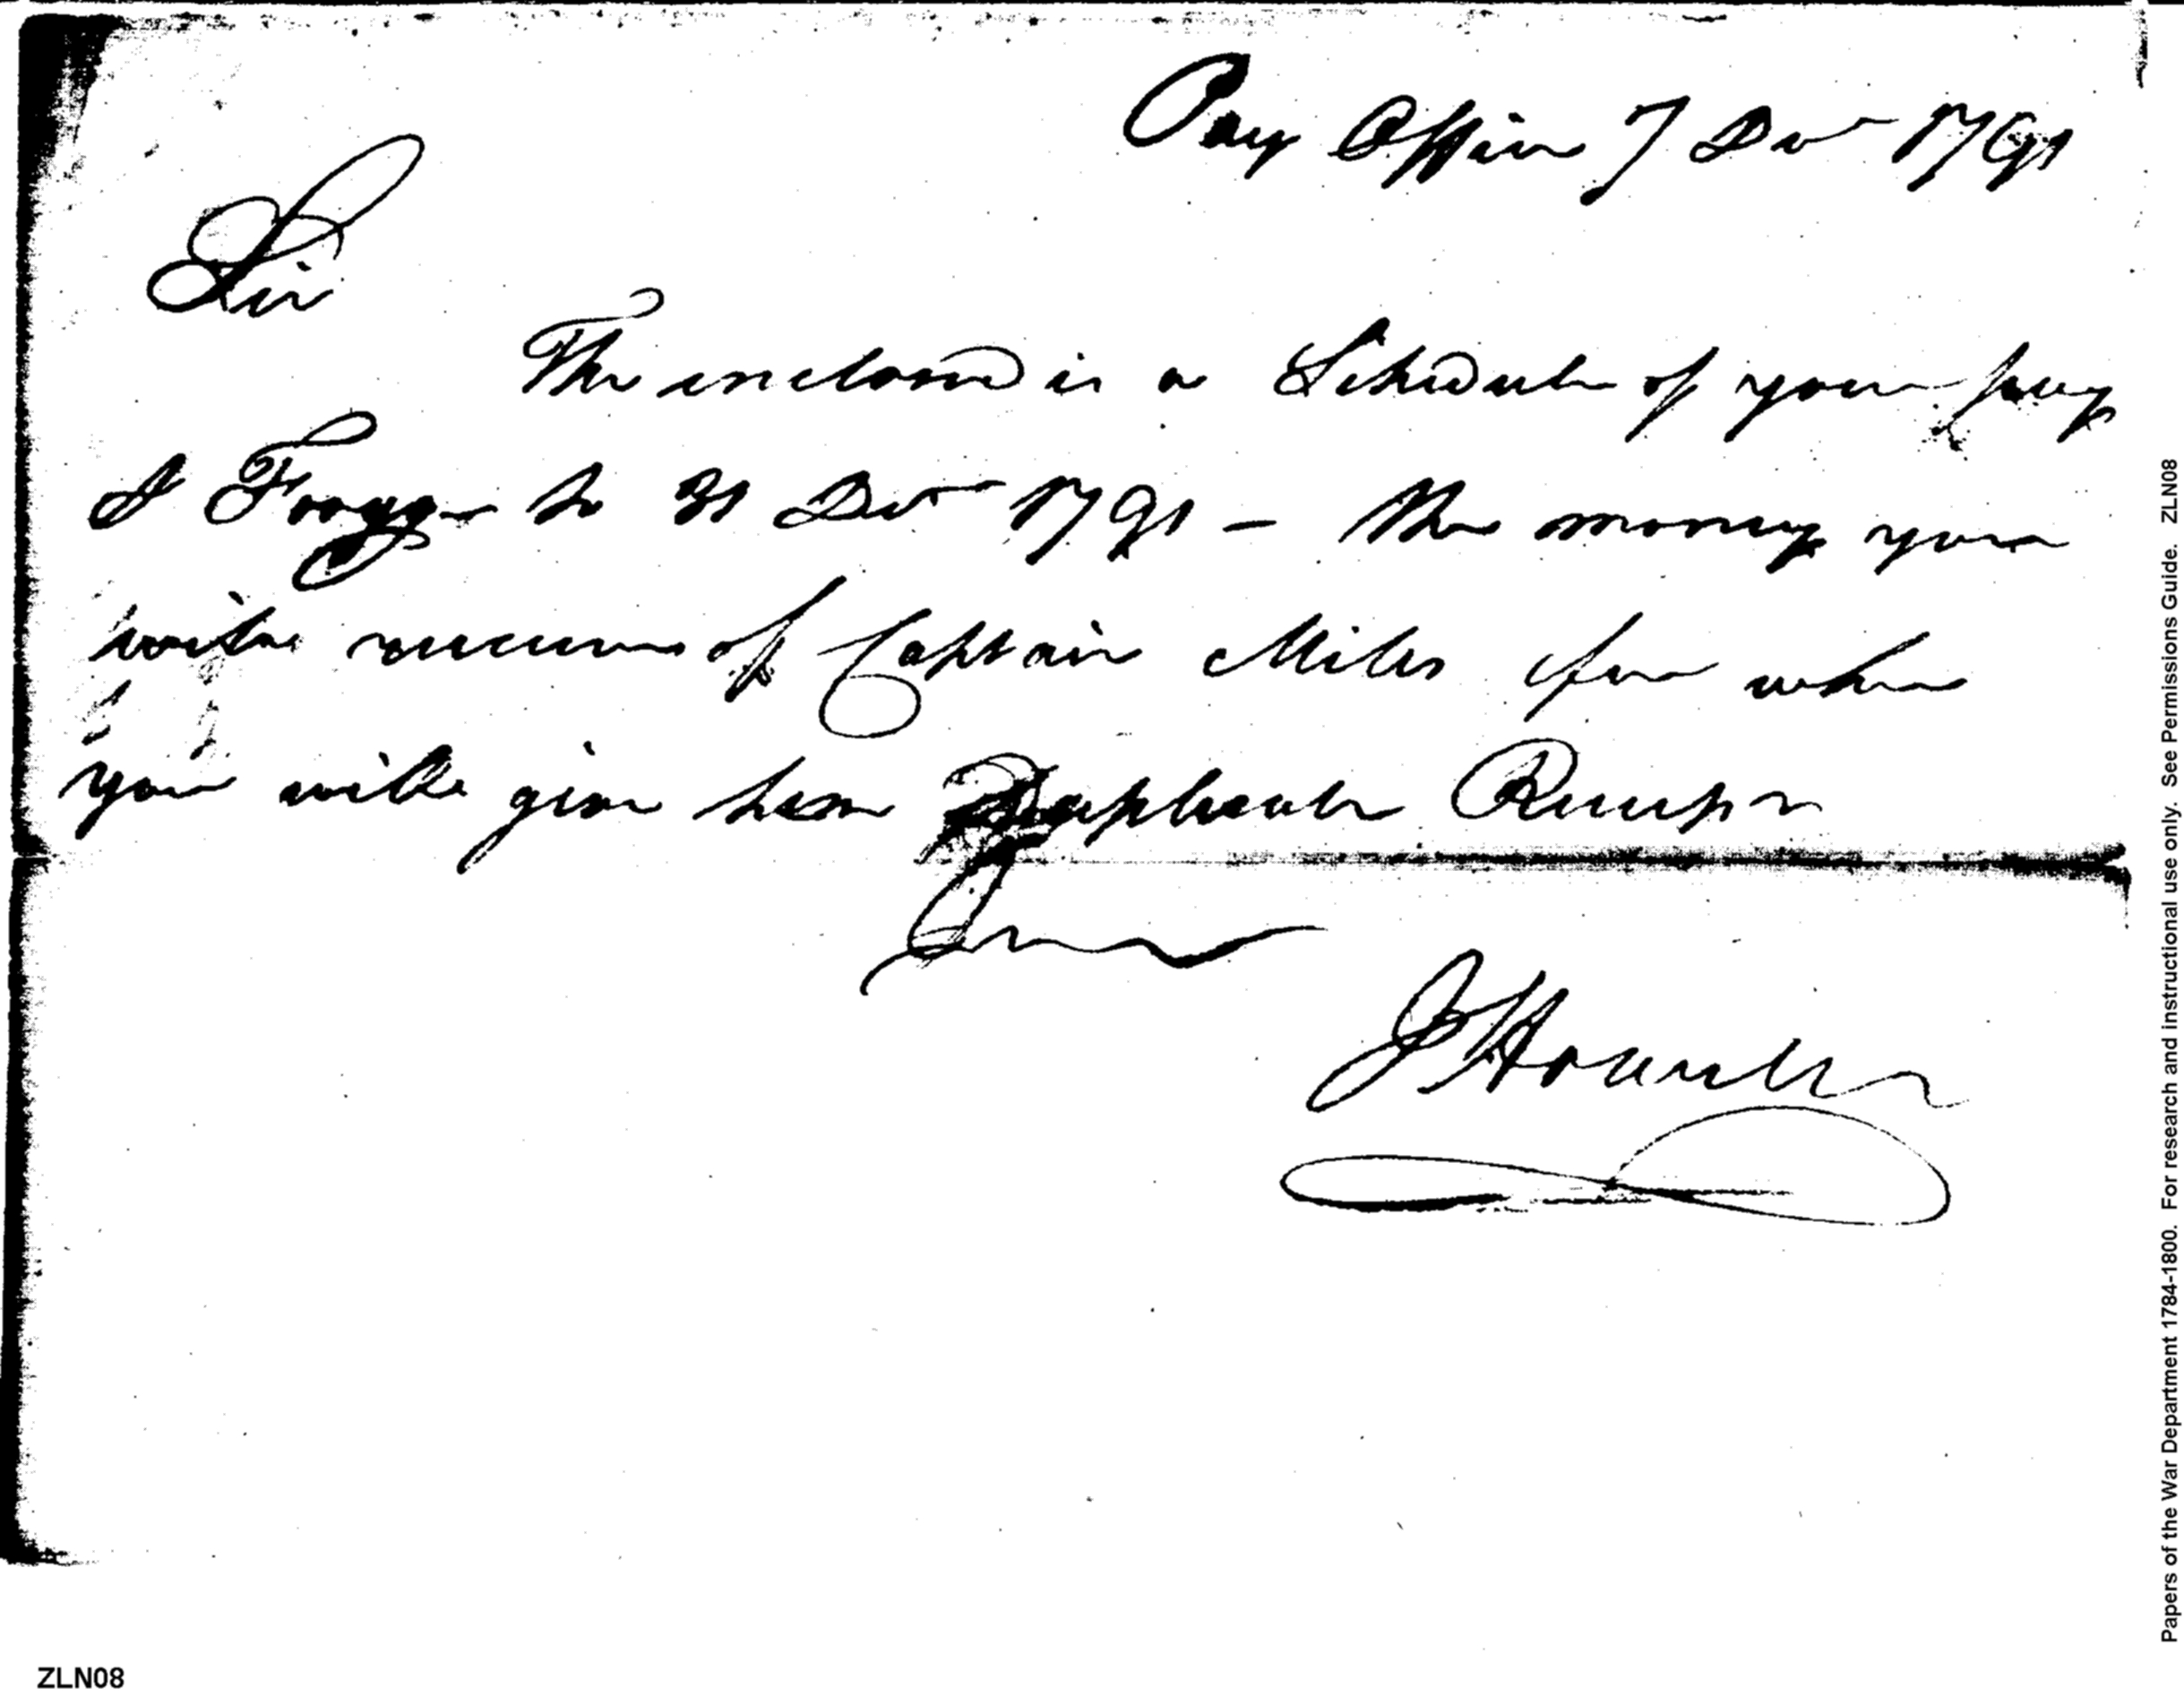 Pay Office 7 Decr 1791
Sir
The inclosed is a Schedule of your pay
& Forage to 31 Decr 1791 - the money you
will receive of Captain Mills for whom
you will give him Duplicate Receipts
J Howell
Papers of the War Department 1784-1800. For research and instructional use only. See Permissions Guide. ZLN08
ZLN08